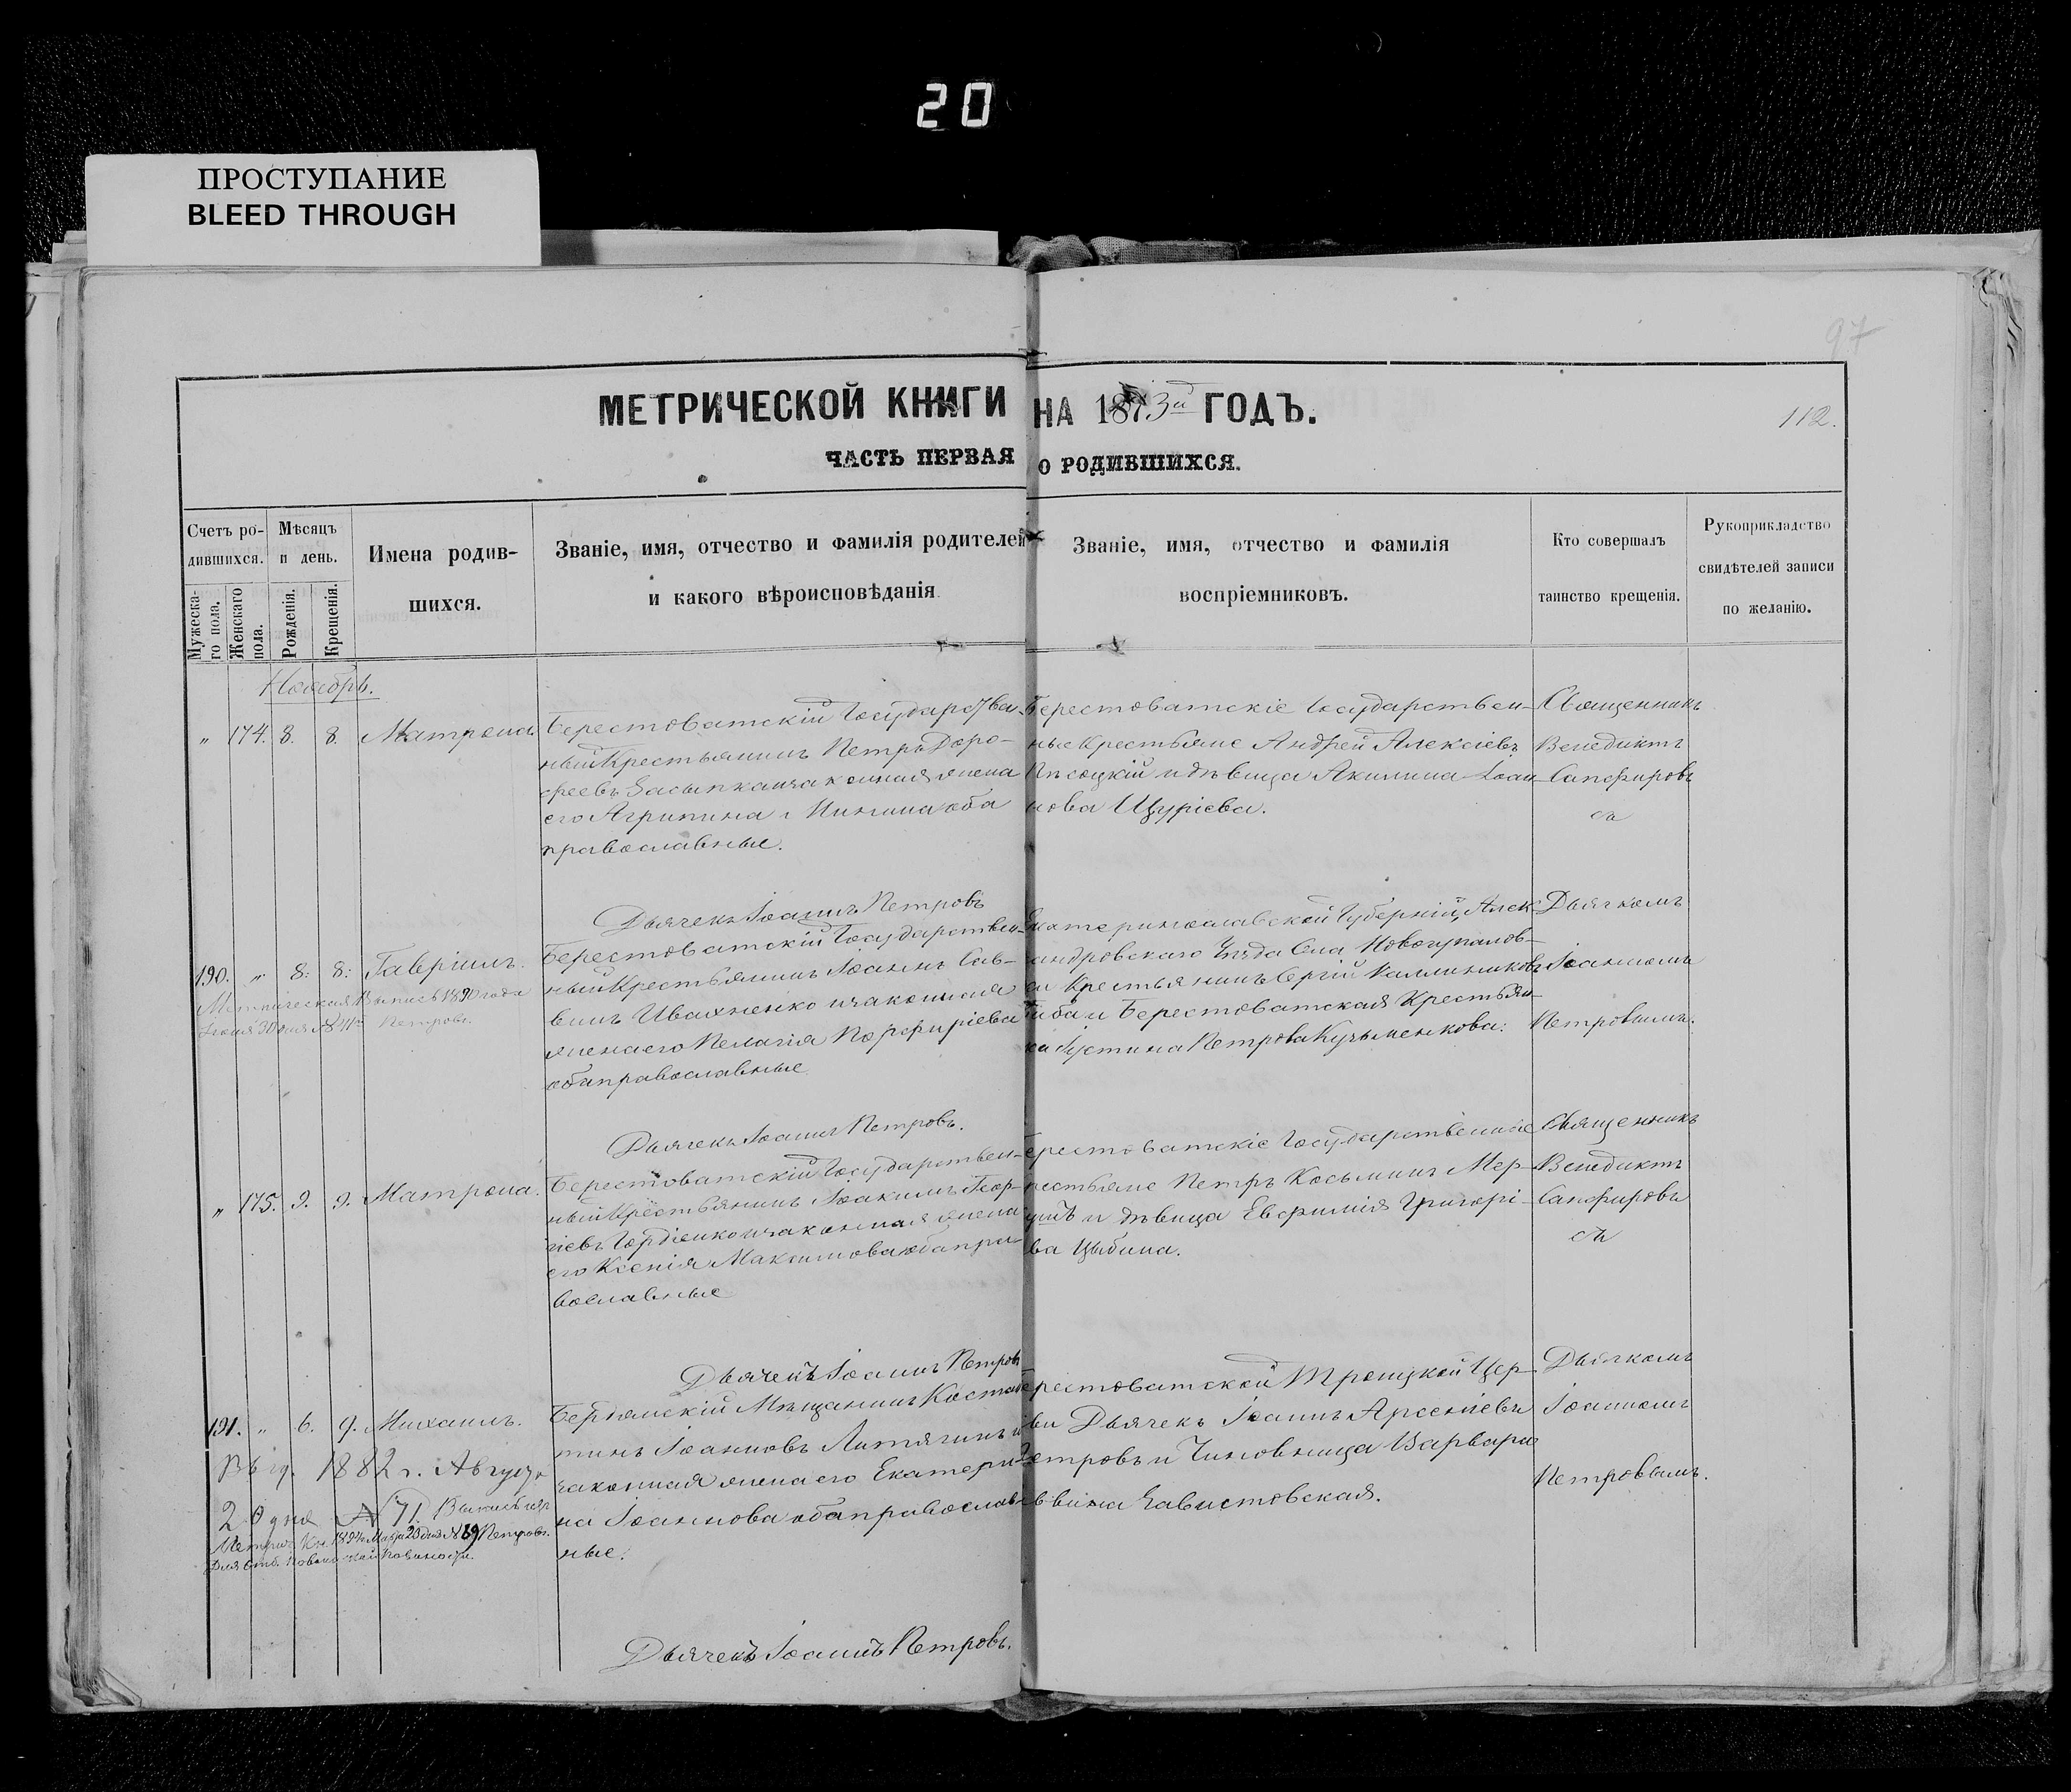 20
ПРОСТУПАНИЕ
BLEED THROUGH
97
МЕТРИЧЕСКОЙ КНИГИ НА 1873й ГОДЪ.
112.
ЧАСТЬ ПЕРВАЯ О РОДИВШИХСЯ.
Счетъ ро-
дившихся.
Мужеска-
го пола.
Женскаго
пола.
Мѣсяцъ
и день.
Рожденія.
Крещенія.
Имена родив-
шихся.
Званіе, имя, отчество и фамилія родителей
и какого вѣроисповѣданія
Званіе, имя, отчество и фамилія
воспріемниковъ.
Кто совершалъ
таинство крещенія.
Рукоприкладство
свидѣтелей записи
по желанію.
Ноябрь.
„ 174. 8. 8. Матрона
Берестоватскій Государствен-
ный Крестьянинъ Петръ Доро-
феевъ Засыпка и законная жена
его Агрипина обa
православные.
Берестоватскіе Государствен-
ные Крестьяне Андрей Алексіевъ
Пѣсоцкій и дѣвица Акилина Іоан-
нова Щуріева.
Священникъ
Венедиктъ
Сапфировъ
съ
Дьячекъ Іоаннъ Петровъ
190. „ 8. 8. Гавріилъ.
Метрическая Выпись 1890 года
Іюня 30 дня Петровъ.
Берестоватскій Государствен-
ный Крестьянинъ Іоаннъ Сав-
винъ Ивахненко и законная
жена его Пелагія Порфиріева
оба православные
Екатеринославской Губерніи, Алек-
андровскаго Уѣзда Села
Крестьянинъ Сергій Каллиниковъ
и Берестоватская Крестьян-
ка Іустина Петрова Кузьменкова:
Дьячкомъ
Іоанномъ
Петровымъ.
Дьячекъ Іоаннъ Петровъ.
„ 175. 9. 9. Матрона.
Берестоватскій Государствен-
ный Крестьянинъ Іоакимъ Геор-
гіевъ Гордіенко и законная жена
его Ксенія Максимова оба пра-
вославные
Берестоватскіе Государственные
Крестьяне Петръ Косьминъ
и дѣвица Евфимія Григорі-
ва Цыбина.
Священникъ
Венедиктъ
Сапфировъ
съ
Дьячекъ Іоаннъ Петровъ
191. „ 6. 9. Михаилъ.
1882 г. Августа
20 дня N 71. Выпись изъ
Метрич. Кн. 1894 г. Марта 23 дня N 89 Петровъ.
Бердянскій Мѣщанинъ Констан-
тинъ Іоанновъ Литягинъ и
законная жена его Екатери-
на Іоаннова оба православ-
ные.
Берестоватской Троицкой Цер-
кви Дьячекъ Іоаннъ Арсеніевъ
Петровъ и Чиновница Варвара
Завистовская.
Дьячкомъ
Іоанномъ
Петровымъ.
Дьячекъ Іоаннъ Петровъ.